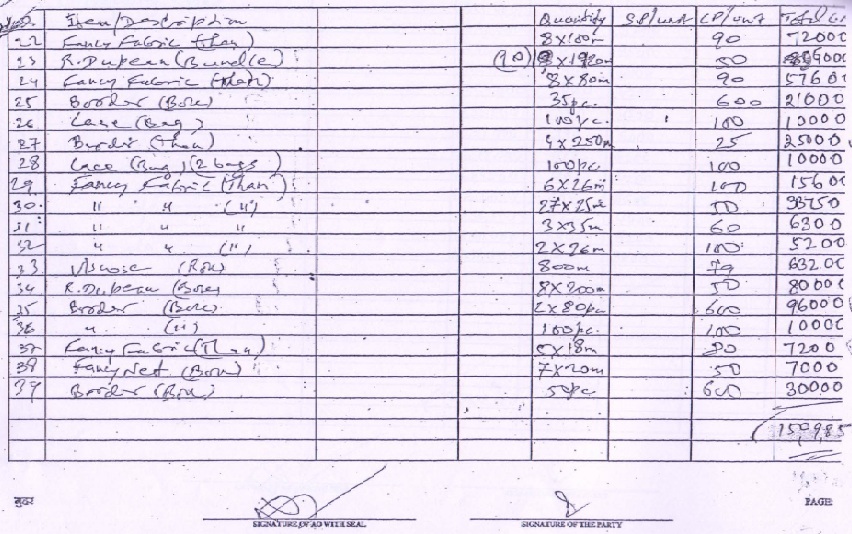 Item/Description Quantity SP/unit CP/unit Total
22 Fancy Fabric (than) 8x100m 90 72000
23 R. Dupean (Bundle) (90) 50
24 Fancy Fabric (than) 8x80m 90 57600
25 Border (Box) 35pc. 600 21000
26 Lace (Bag) 100pc. 100 10000
27 Border (than) 4x250m 25 25000
28 Lace (Bag) (2 bags) 100pc 100 10000
29 Fancy Fabric (than) 6x26m 100 15600
30 " " (") 27x25m 50 33750
31 " " " 3x35m 60 6300
32 " " (") 2x26m 100 5200
33 Viscose (Box) 800m 79 63200
34 R. Dupean (Box) 8x200m 50 80000
35 Border (Box) 2x80pc 600 96000
36 " (") 100pc. 100 10000
37 Fancy Fabric (Than) 5x18m 80 7200
38 Fancy Net (Born) 7x20m 50 7000
39 Border (Box) 50pc 600 30000
150985
मुहर SIGNATURE OF AO WITH SEAL SIGNATURE OF THE PARTY PAGE